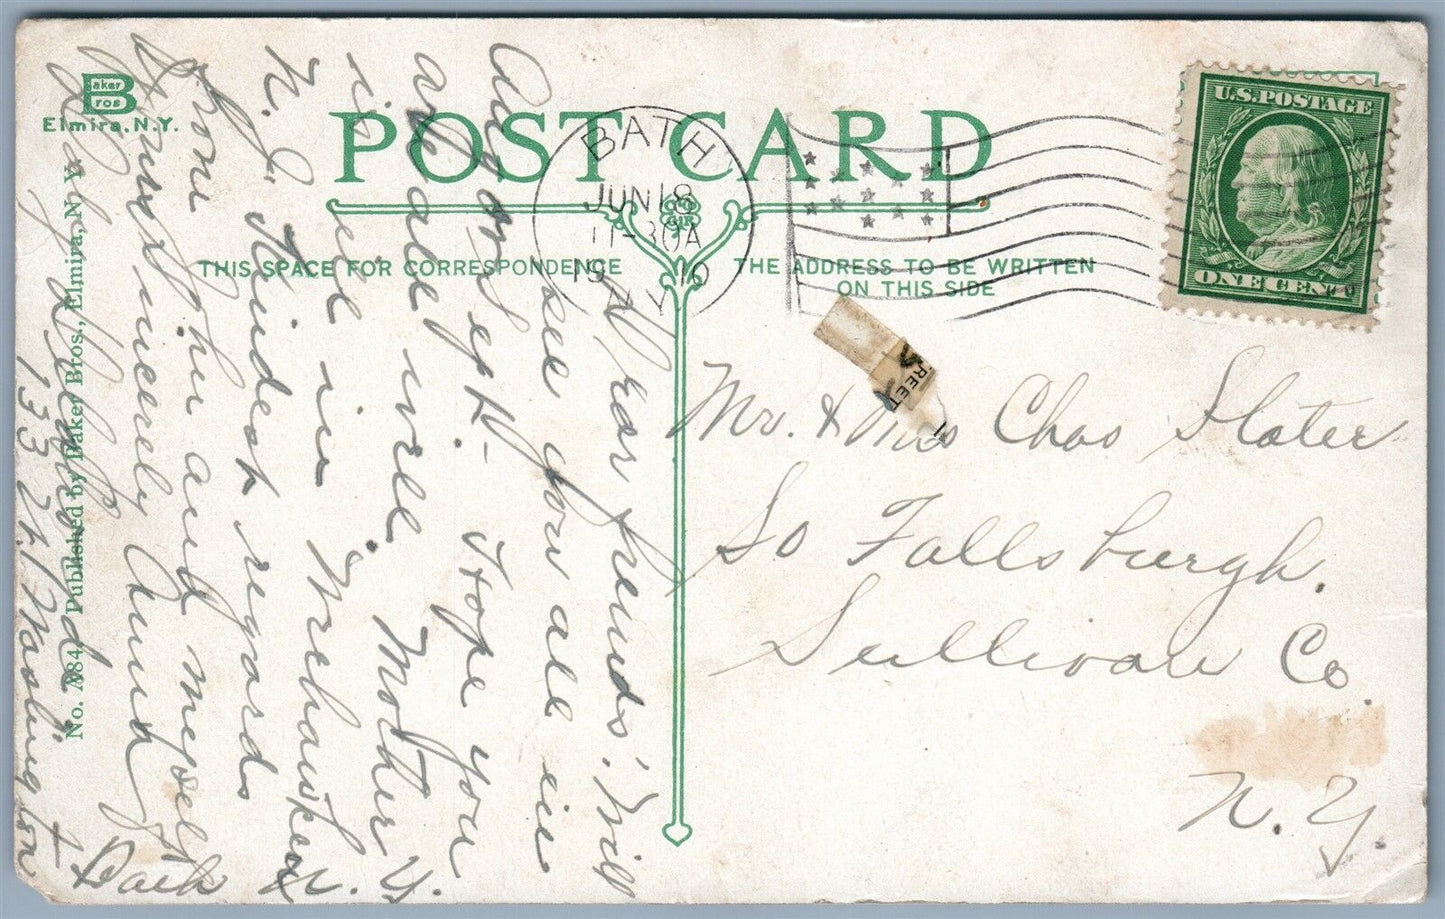 Baker
Bros
Elmira, N.Y.
POST CARD
THIS SPACE FOR CORRESPONDENCE
THE ADDRESS TO BE WRITTEN
ON THIS SIDE
BATH
JUN 18
11-30A
1910
N.Y.
U.S. POSTAGE
ONE CENT
REET
Mr. & Mrs Chas Slater
So Fallsburgh.
Sullivan Co.
N. Y.
Dear friends: Will
see you all in
Aug or Sept - Hope you
are all well. Mother
is still in Weehawken
N. J. Kindest regards
from her and myself
Yours sincerely Anna
133 W. Washington
Bath N. Y.
No. A84 Published by Baker Bros., Elmira, N. Y.